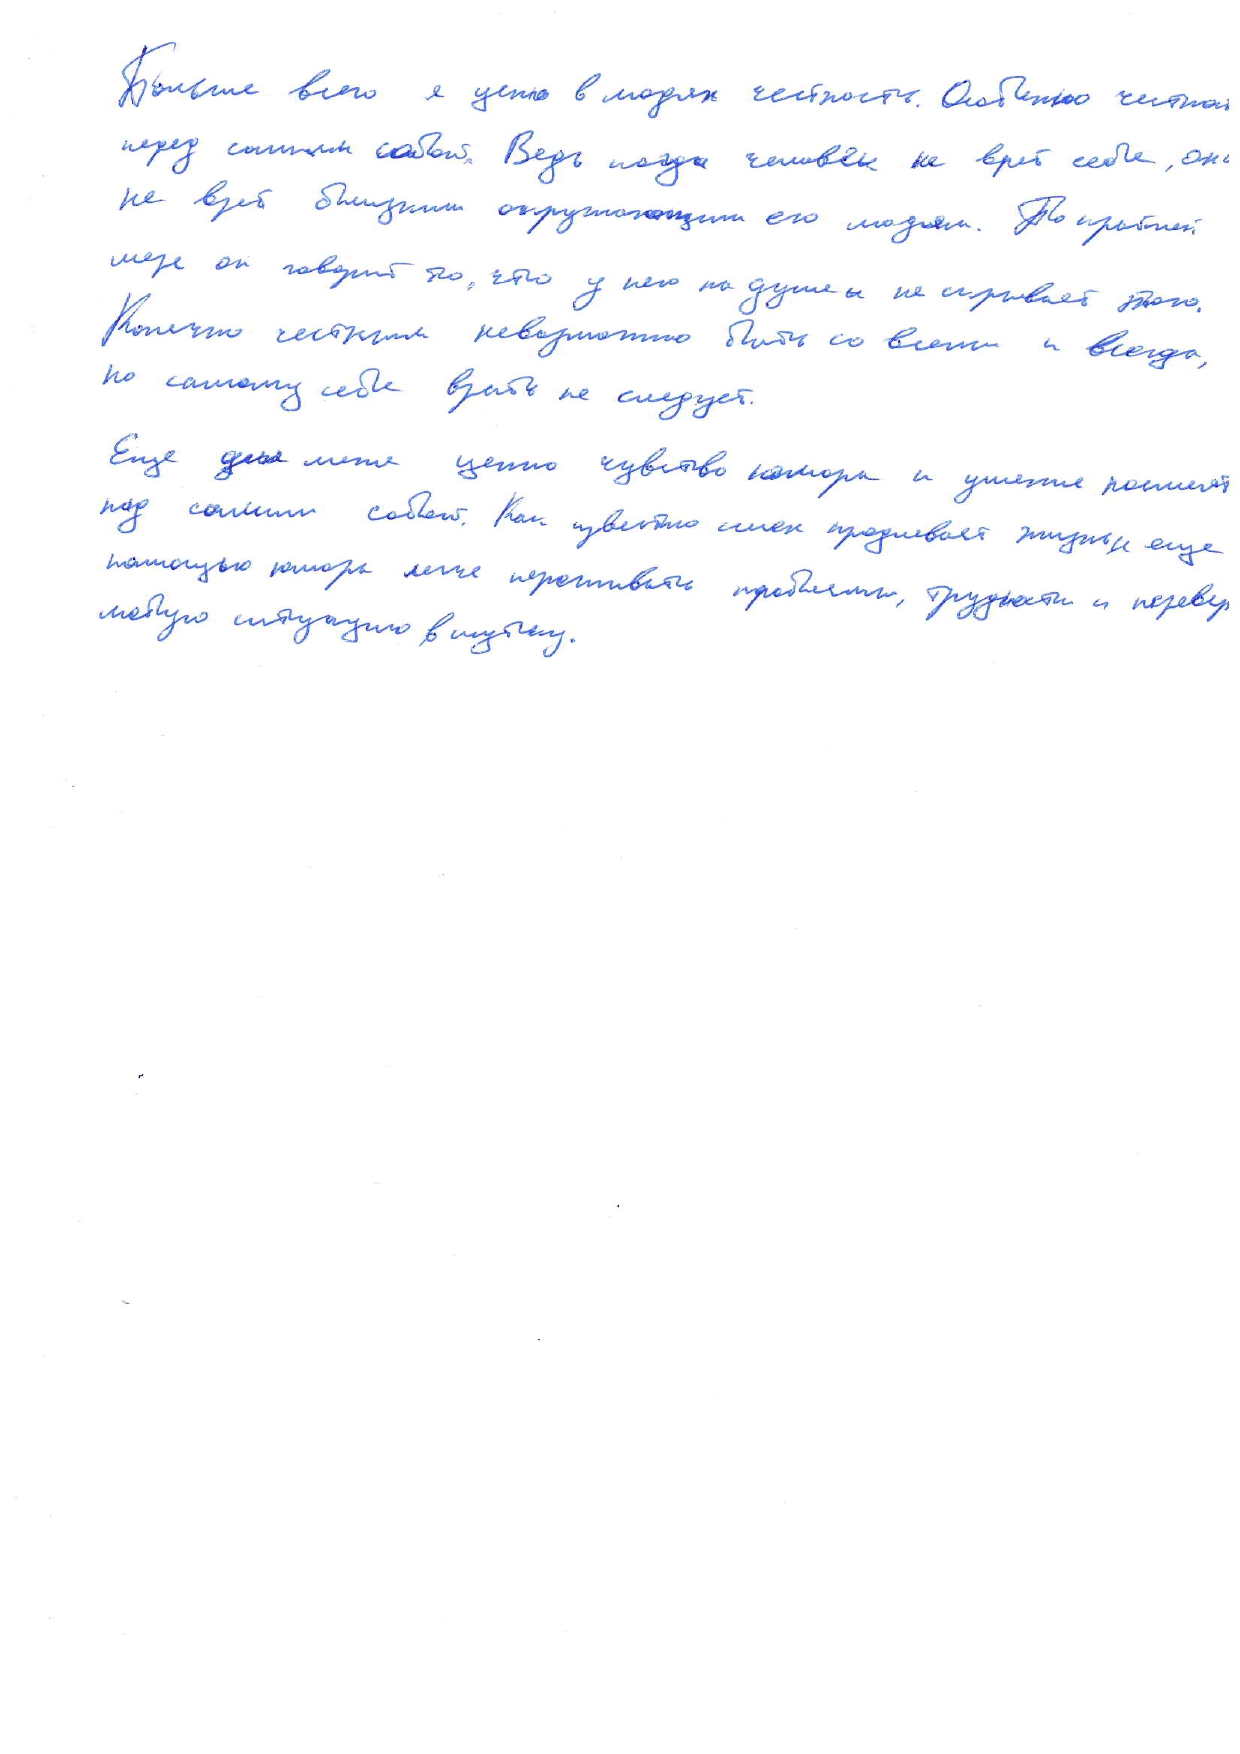 Больше всего я ценю в людях честность. Особенно честнос
перед самим собой. Ведь когда человек не врет себе, он
не врет близким окружающим его людям. По крайней
мере он говорит то, что у него на душе и не скрывает этого.
Конечно честным невозможно быть со всеми и всегда,
но самому себе врать не следует.
Еще для меня ценно чувство юмора и умение посмеят
над самим собой. Как известно смех продлевает жизнь, и еще
помощью юмора легче переживать проблемы, трудности и перевер
любую ситуацию в шутку.